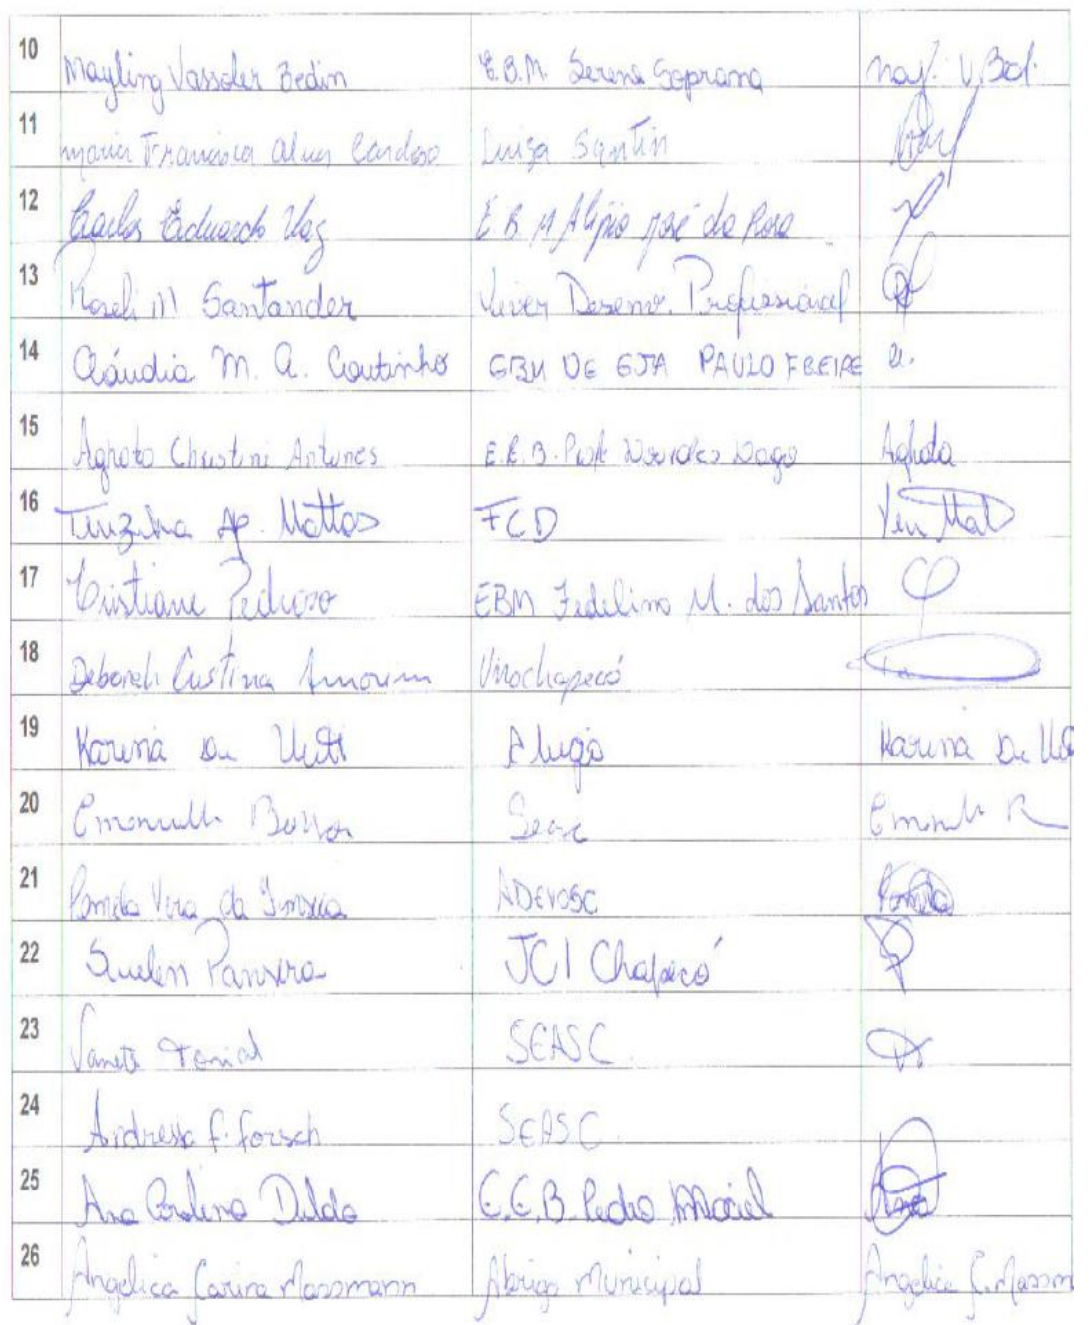 10 Mayling Vassoler Bedin E.B.M. Serena Soprana May. V. Bed.
11 maria Francisca Alves Cardoso Luiza Santin
12 Carlos Eduardo Vaz E.B.M Alípio José da Rosa
13 Roseli M Santander Viver Desenv. Profissional
14 Cláudia M. A. Coutinho EBM DE EJA PAULO FREIRE
15 Aghata Christini Antunes E.E.B. Prof Lourdes Lago Aghata
16 Terezinha Ap. Mattos FCD
17 Cristiane Pedroso EBM Fedelino M. dos Santos
18 Deborah Cristina Amorim Unochapecó
19 Karina De Witt Karina De
20
21 Pamela Vera da Fonseca ADEVOSC Pamela
22 Suelen Pansera JCI Chapecó
23 Vanete Tonial SEASC
24 Andressa F. Forsch SEASC
25 Ana Carolina Daldo E.E.B. Pedro Maciel Ana
26 Angelica Carina Massmann Abrigo Municipal Angelica C. Massm